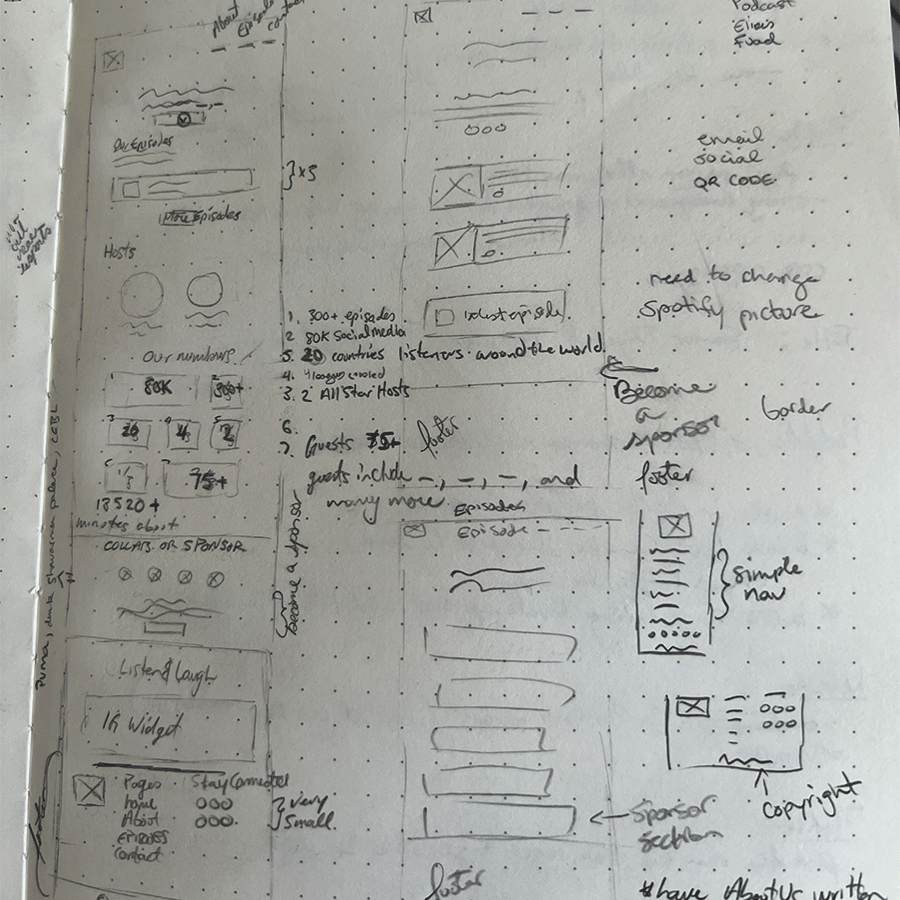 About
Episodes
Contact
Our Episodes
x3
More Episodes
Hosts
Our numbers
80K
300+
20
4
2
75+
13520+
minutes about
COLLAB. OR SPONSOR
Listen & Laugh
IG Widget
Pages
home
About
EPISODES
Contact
Stay Connected
very
small
footer
1. 300+ episodes
2 80K Social media
5. 20 countries listeners around the world
4.
3. 2 All Star Hosts
6.
7. Guests 75+
guests include —, —, —, and
many more
become a sponsor
latest episode
footer
Episodes
Episode
footer
Podcast
Fuad
email
social
QR CODE
need to change
Spotify picture
Become
a
sponsor
border
footer
simple
nav
copyright
Sponsor
section
*have About Us written